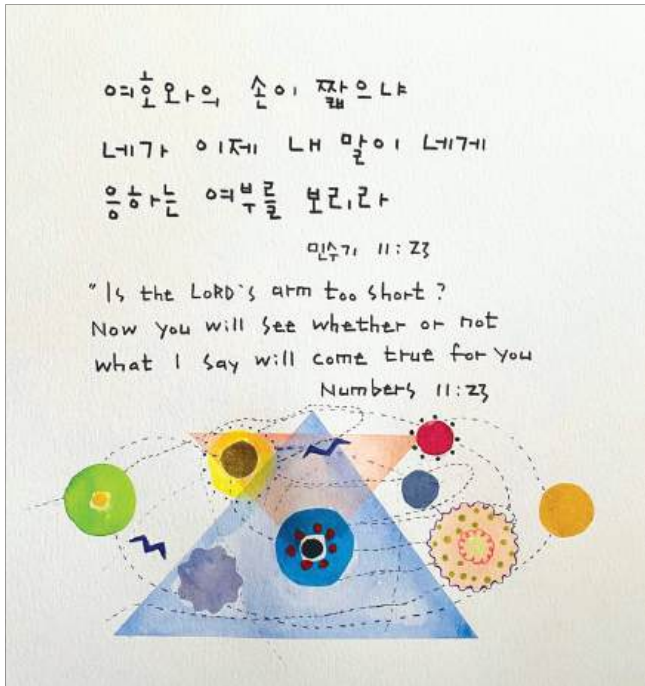 여호와의 손이 짧으냐
네가 이제 내 말이 네게
응하는 여부를 보리라
민수기 11:23
"Is the LORD's arm too short?
Now you will see whether or not
what I say will come true for you
Numbers 11:23